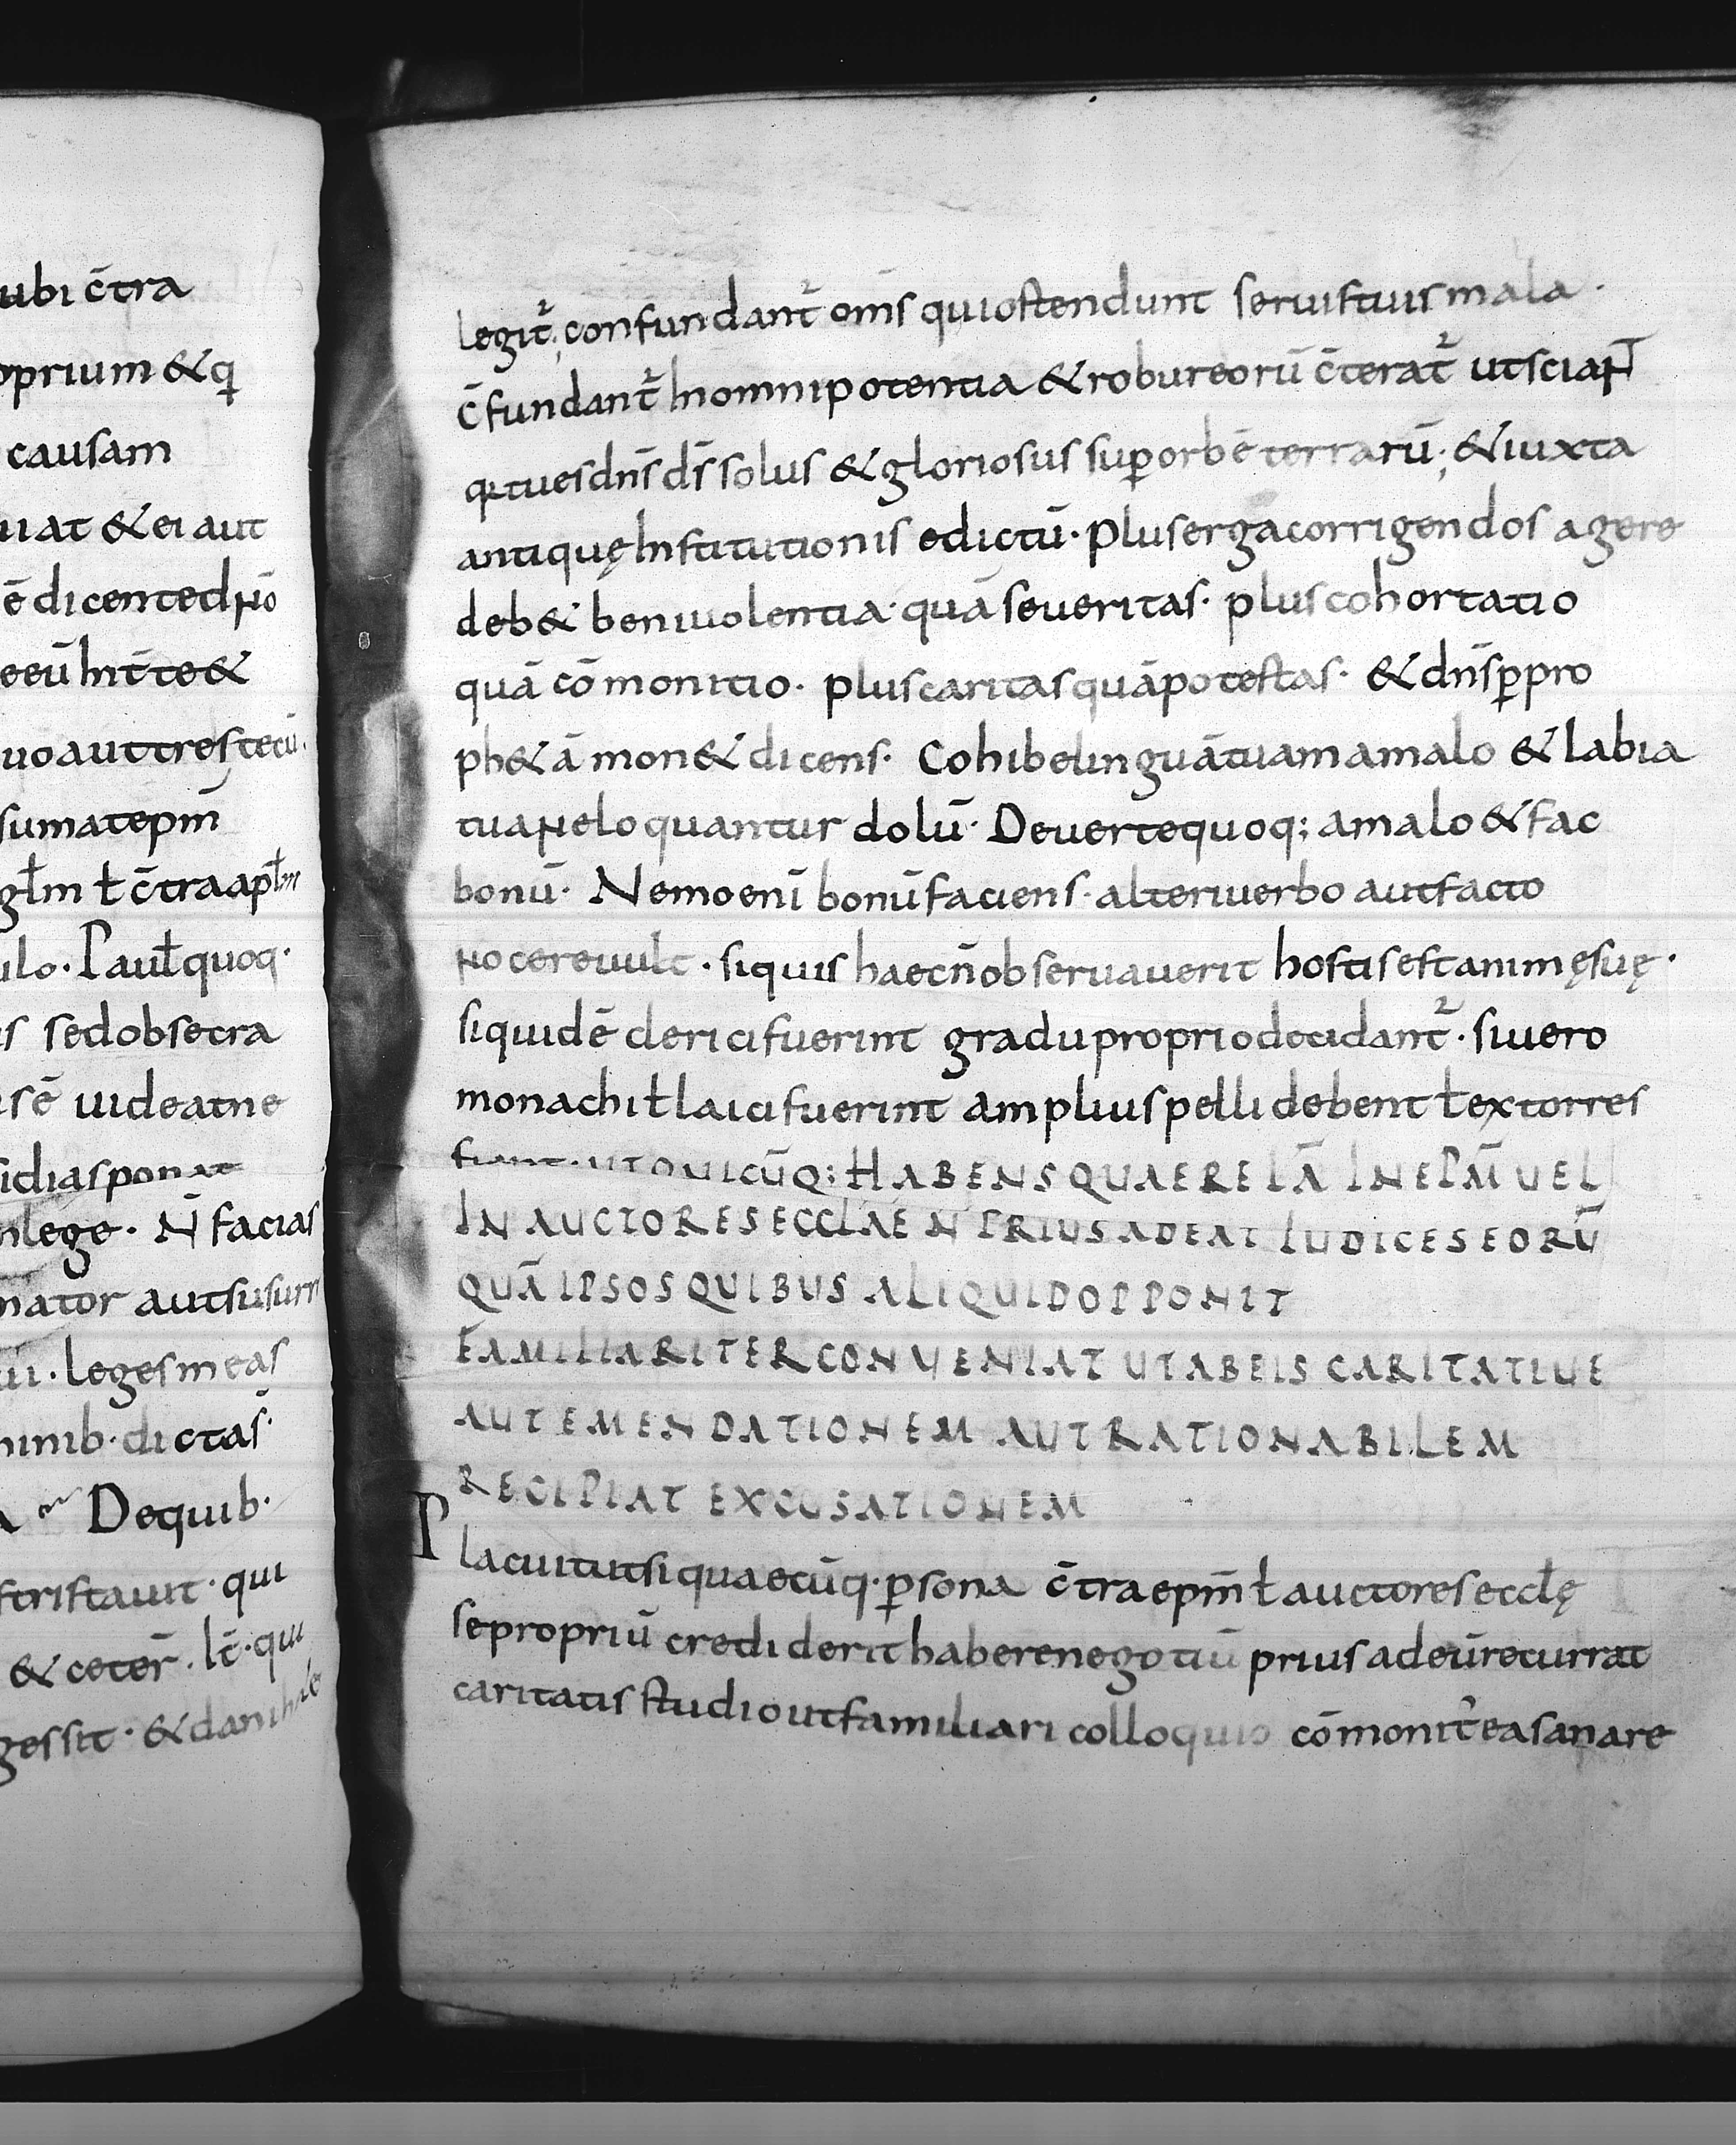 ubi c̄tra
oprium & q
causam
uiat & ei aut
ē dicente dño
eeū hīc te &
uo aut tres tecū.
sumat epm̄
głm ł c̄tra apłm
ulo. Pauł quoq·
is sed obsecra
sē uideat ne
sidias ponat
nlege. N̄ facias
nator aut susurr
ui. leges meas
minib· dictas·
De quib·
stristauit· qui
& ceter̄. Ic̄· qui
gessit· & da
legit̄; confundant̄ om̄s qui ostendunt seruis tuis mala.
c̄fundant̄ In omni potentia & robur eorū c̄terat̄ ut sciaNT
q tu es dn̄s ds̄ solus & gloriosus sup orbē terrarū; & iuxta
antiquę Institutionis edictū· plus erga corrigendos agere
deb& beniuolentia· quā seueritas· plus cohortatio
quā cōmonitio. plus caritas quā potestas· & dn̄s p pro
ph&ā mon& dicens· Cohibe linguā tuam a malo & labia
tua Ne loquantur dolū· Deuerte quoq; a malo & fac
bonū· Nemo enī bonū faciens· alteri uerbo aut facto
Nocere uult. si quis haec n̄ obseruauerit hostis est animę suę.
siquidē clerici fuerint gradu proprio decidant̄. si uero
monachi ł laici fuerint amplius pelli debent ł extorres
fiant· UT QUICŪQ; HABENS QUAERELĀ IN EPM̄ VEL
IN AUCTORES ECCLAE N̄ PRIUS ADEAT IUDICES EORŪ
QUĀ IPSOS QUIBUS ALIQUID OPPONIT
FAMILIARITER CONVENIAT UT AB EIS CARITATIUE
AUT EMENDATIONEM AUT RATIONABILEM
RECIPIAT EXCUSATIONEM
Placuit ut si quaecūq· psona c̄tra epm̄ ł auctores eccłę
se propriū crediderit habere negotiū prius ad eū recurrat
caritatis studio ut familiari colloquio cōmonit̄ ea sanare